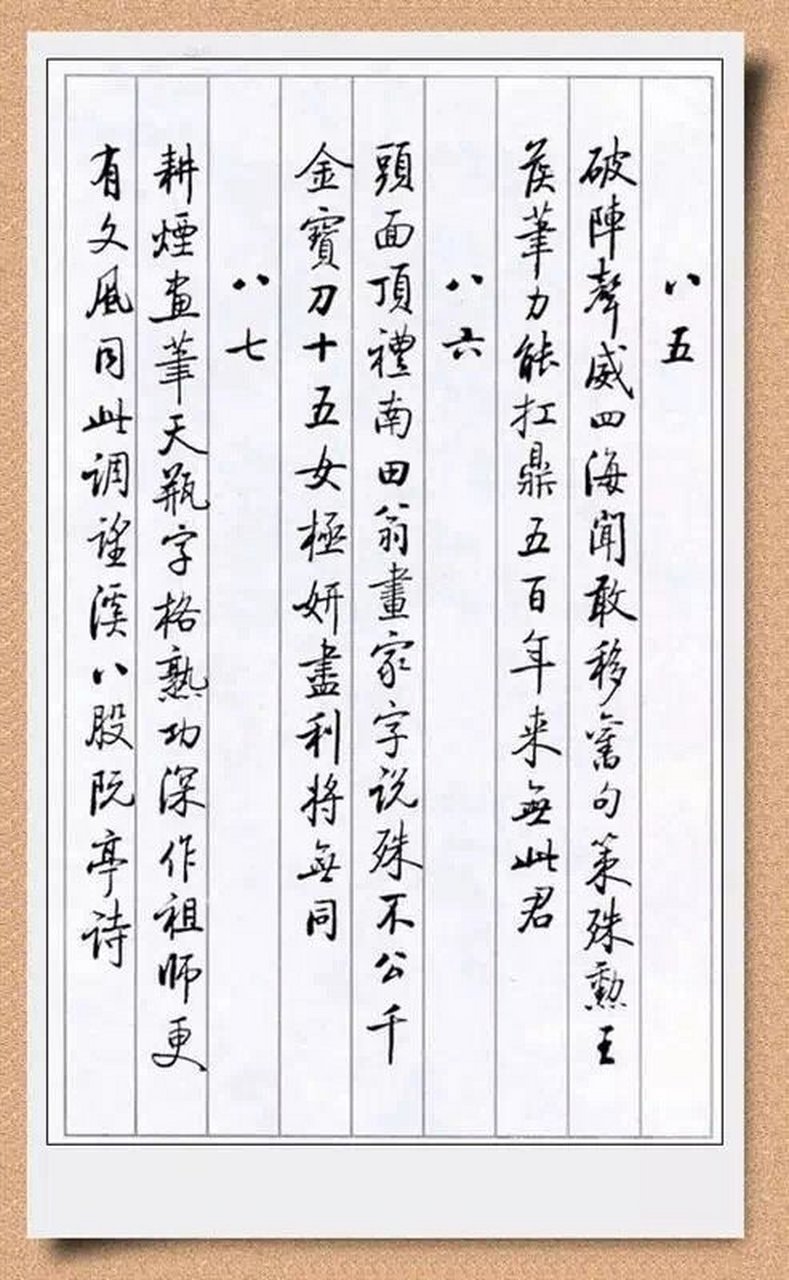 八五
破陣聲威四海聞敢移舊句策殊勳王
侯筆力能扛鼎五百年来無此君
八六
頭面頂禮南田翁畫家字説殊不公千
金寶刀十五女極妍盡利將無同
八七
耕煙畫筆天瓶字格熟功深作祖師更
有文風同此调望溪八股阮亭诗